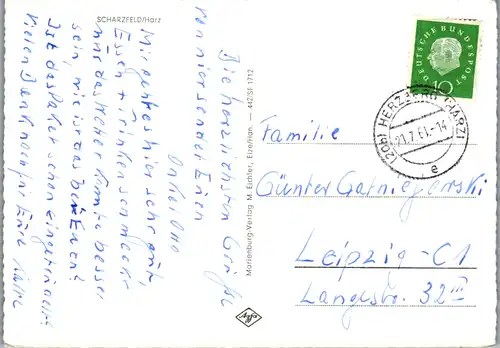 SCHARZFELD/Harz
Die herzlichsten Grüße
von hier sendet Euch
Onkel Otto
Mir geht es hier sehr gut
Essen + trinken schmeckt
nur das Wetter könnte besser
sein, wie ist das bei Euch
Ist das Paket schon eingetroffen
Vielen Dank
Marienburg-Verlag M. Eichler, Elze/Han. — 442/SF 1712
Agfa
DEUTSCHE BUNDESPOST
10
(20b) HERZBERG (HARZ)
21.7.61-14
e
Familie
Günter
Leipzig - C1
Langestr. 32 III